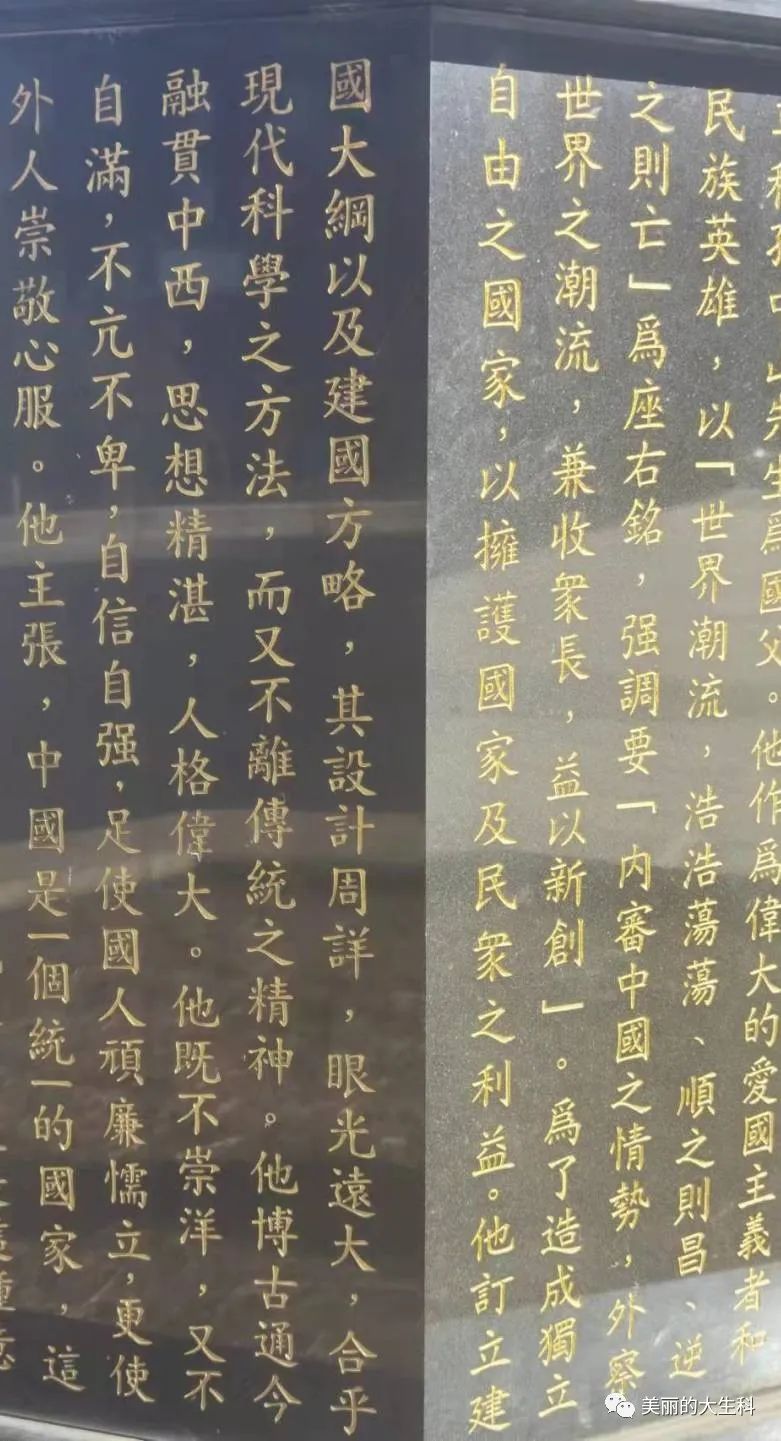 先生爲國父。他作爲偉大的愛國主義者和
民族英雄，以「世界潮流，浩浩蕩蕩、順之則昌、逆
之則亡」爲座右銘，强調要「内審中國之情勢，外察
世界之潮流，兼收衆長，益以新創」。爲了造成獨立
自由之國家，以擁護國家及民衆之利益。他訂立建
國大綱以及建國方略，其設計周詳，眼光遠大，合乎
現代科學之方法，而又不離傳統之精神。他博古通今
融貫中西，思想精湛，人格偉大。他既不崇洋，又不
自滿，不亢不卑，自信自强，足使國人頑廉懦立，更使
外人崇敬心服。他主張，中國是一個統一的國家，這
美丽的大生科